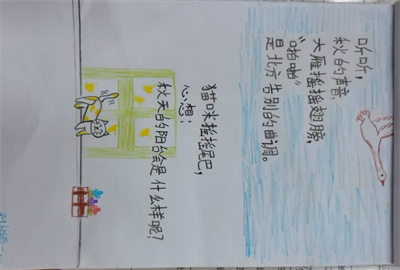 听听，
秋的声音，
大雁摇摇翅膀，
“啪啪”
是北方告别的曲调。
猫咪摇摇尾巴，
心想：
秋天的阳台会是什么样呢？